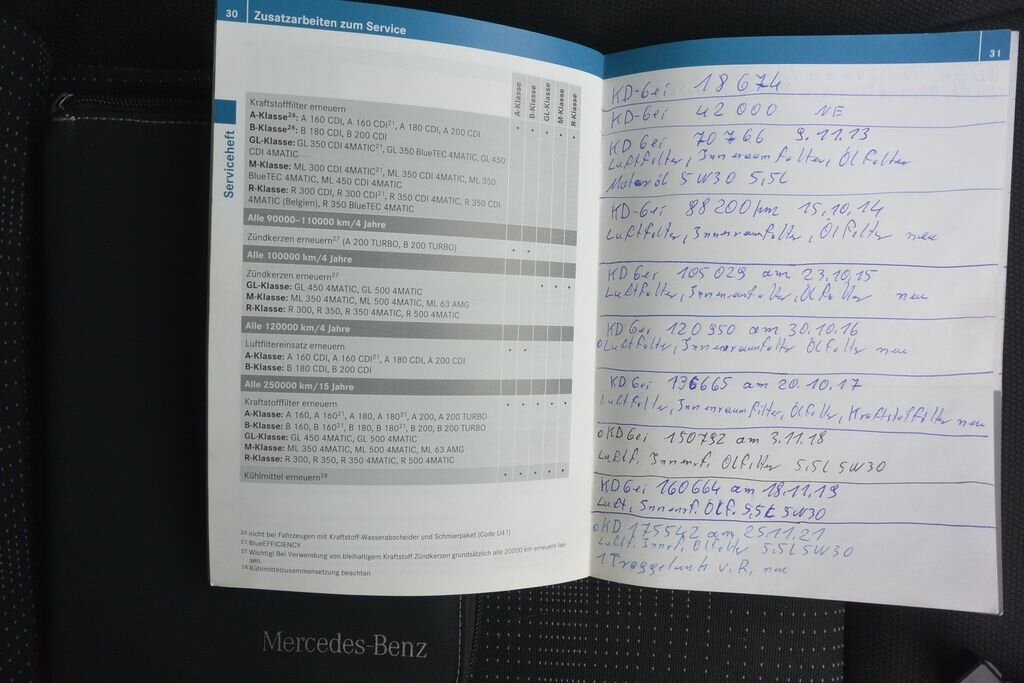 30 Zusatzarbeiten zum Service
Serviceheft
A-Klasse
B-Klasse
GL-Klasse
M-Klasse
R-Klasse
Kraftstofffilter erneuern
A-Klasse26: A 160 CDI, A 160 CDI21, A 180 CDI, A 200 CDI
B-Klasse26: B 180 CDI, B 200 CDI
GL-Klasse: GL 350 CDI 4MATIC21, GL 350 BlueTEC 4MATIC, GL 450
CDI 4MATIC
M-Klasse: ML 300 CDI 4MATIC21, ML 350 CDI 4MATIC, ML 350
BlueTEC 4MATIC, ML 450 CDI 4MATIC
R-Klasse: R 300 CDI, R 300 CDI21, R 350 CDI 4MATIC, R 350 CDI
4MATIC (Belgien), R 350 BlueTEC 4MATIC
Alle 90000–110000 km/4 Jahre
Zündkerzen erneuern27 (A 200 TURBO, B 200 TURBO)
Alle 100000 km/4 Jahre
Zündkerzen erneuern27
GL-Klasse: GL 450 4MATIC, GL 500 4MATIC
M-Klasse: ML 350 4MATIC, ML 500 4MATIC, ML 63 AMG
R-Klasse: R 300, R 350, R 350 4MATIC, R 500 4MATIC
Alle 120000 km/4 Jahre
Luftfiltereinsatz erneuern
A-Klasse: A 160 CDI, A 160 CDI21, A 180 CDI, A 200 CDI
B-Klasse: B 180 CDI, B 200 CDI
Alle 250000 km/15 Jahre
Kraftstofffilter erneuern
A-Klasse: A 160, A 16021, A 180, A 18021, A 200, A 200 TURBO
B-Klasse: B 160, B 16021, B 180, B 18021, B 200, B 200 TURBO
GL-Klasse: GL 450 4MATIC, GL 500 4MATIC
M-Klasse: ML 350 4MATIC, ML 500 4MATIC, ML 63 AMG
R-Klasse: R 300, R 350, R 350 4MATIC, R 500 4MATIC
Kühlmittel erneuern28
26 nicht bei Fahrzeugen mit Kraftstoff-Wasserabscheider und Schmierpaket (Code U41)
21 BlueEFFICIENCY
27 Wichtig! Bei Verwendung von bleihaltigem Kraftstoff Zündkerzen grundsätzlich alle 20000 km erneuern las-
sen.
28 Kühlmittelzusammensetzung beachten
Mercedes-Benz
31
KD-bei 18674
KD-bei 42 000 NE
KD bei 70766 9.11.13
Luftfilter, Innenraumfilter, Ölfilter
Motoröl 5W30 5,5L
KD-bei 88200 km 15.10.14
Luftfilter, Innenraumfilter, Ölfilter neu
KD bei 105029 am 23.10.15
Luftfilter, Innenraumfilter, Ölfilter neu
KD bei 120950 am 30.10.16
Luftfilter, Innenraumfilter Ölfilter neu
KD bei 136665 am 20.10.17
Luftfilter, Innenraumfilter, Ölfilter, Kraftstofffilter neu
KD bei 150792 am 3.11.18
Luftf. Innenf. Ölfilter 5,5L 5W30
KD bei 160664 am 18.11.19
Luft, Innenf. Ölf. 5,5L 5W30
KD 175542 am 25.11.21
Luftf. Innenf. Ölfilter 5,5L 5W30
1 Traggelenk v.R. neu